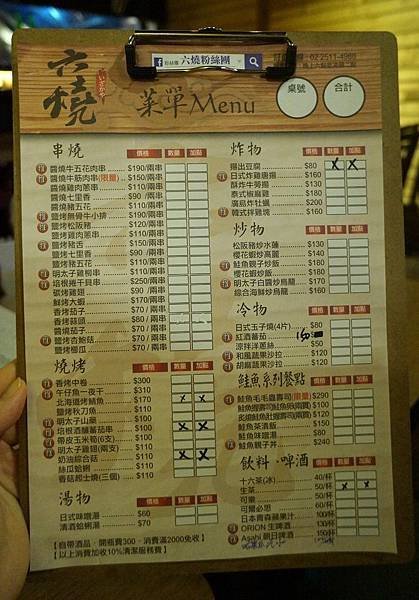 粉絲團 六燒粉絲團
02-2511-4988
六燒
菜單Menu
桌號
合計
串燒 價格 數量 加點
醬燒牛五花肉串 $190/兩串
醬燒牛筋肉串(限量) $150/兩串
醬燒雞肉蔥串 $110/兩串
醬燒七里香 $90 /兩串
醬燒豬五花 $110/兩串
鹽烤無骨牛小排 $190/兩串
鹽烤松阪豬 $120/兩串
鹽烤雞肉蔥串 $110/兩串
鹽烤豬舌 $150/兩串
鹽烤七里香 $90 /兩串
鹽烤豬五花 $110/兩串
明太子雞柳串 $110/兩串
培根捲干貝串 $250/兩串
碳烤雞翅 $90 /兩串
鮮烤大蝦 $170/兩串
香烤茄子 $70 /兩串
香烤蒜頭 $80 /兩串
醬燒茄子 $70 /兩串
鹽烤杏鮑菇 $70 /兩串
鹽烤櫛瓜 $70 /兩串
燒烤 價格 數量 加點
香烤中卷 $300
午仔魚一夜干 $310
北海道烤鯖魚 $170 x x
鹽烤秋刀魚 $110
明太子山藥 $100
培根酒釀蕃茄 $100 x x
帶皮玉米筍(6支) $100
明太子雞翅(兩支) $110
奶油綜合菇 $110 x x
絲瓜蛤蜊 $110
香菇起士燒(三個) $110
湯物 價格 數量 加點
日式味噌湯 $60
清酒蛤蜊湯 $70
【自帶酒品、開瓶費300、消費滿2000免收】
【以上消費加收10%清潔服務費】
炸物 價格 數量 加點
揚出豆腐 $80 x x
日式炸雞唐揚 $160
酥炸牛蒡揚 $130
泰式椒麻雞 $180
廣島炸牡蠣 $200
韓式拌雞塊 $160
炒物 價格 數量 加點
松阪豬炒水蓮 $130
櫻花蝦炒高麗 $140
鮭魚親子炒飯 $180
櫻花蝦炒飯 $180
明太子白醬炒烏龍 $170
綜合海鮮炒烏龍 $160
冷物 價格 數量 加點
日式玉子燒(4片) $80
紅酒蕃茄 150
涼拌洋蔥絲 $50
和風蘋果沙拉 $120
胡麻蘋果沙拉 $120
鮭魚系列餐點 價格 數量 加點
鮭魚毛毛蟲壽司(限量) $290
$100
$200
鮭魚茶漬飯 $150
鮭魚味噌湯 $80
鮭魚親子丼 $240
飲料、啤酒 價格 數量 加點
十六茶(冰) 40/杯
生茶 50/杯 x x
可樂 50/杯
可爾必思 60/杯
日本青森蘋果汁 100/杯
ORION 生啤酒 130/杯
Asahi 朝日啤酒 150/杯